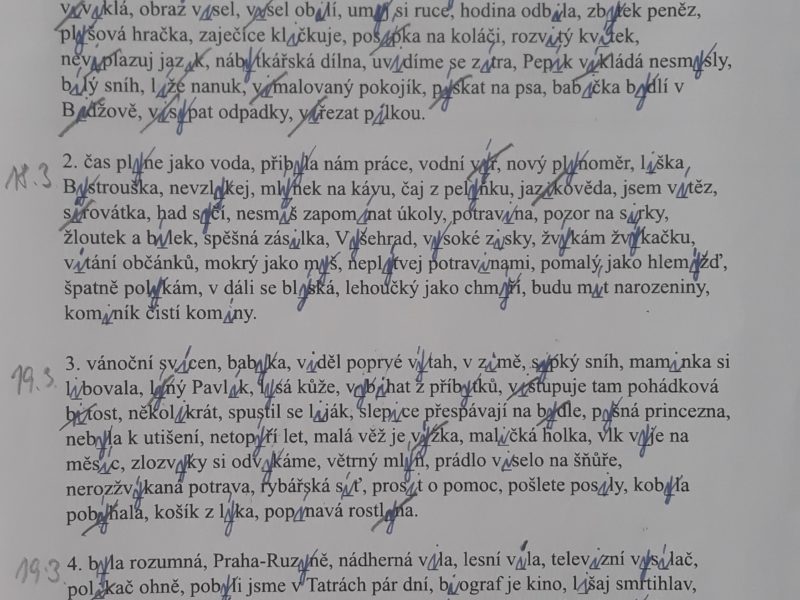 obraz visel, vysel obilí, umyj si ruce, hodina odbila, zbytek peněz,
plyšová hračka, zaječice kličkuje, posypka na koláči, rozvitý kvítek,
nevyplazuj jazyk, nábytkářská dílna, uvidíme se zítra, Pepík vykládá nesmysly,
bílý sníh, líže nanuk, vymalovaný pokojík, pískat na psa, babička bydlí v
Bydžově, vysypat odpadky, vyřezat pilkou.
18.3 2. čas plyne jako voda, přibyla nám práce, vodní výr, nový plynoměr, liška
Bystrouška, nevzlykej, mlýnek na kávu, čaj z pelyňku, jazykověda, jsem vítěz,
syrovátka, had syčí, nesmíš zapomínat úkoly, potravina, pozor na sirky,
žloutek a bílek, spěšná zásilka, Vyšehrad, vysoké zisky, žvýkám žvýkačku,
vítání občánků, mokrý jako myš, neplýtvej potravinami, pomalý jako hlemýžď,
špatně polykám, v dáli se blýská, lehoučký jako chmýří, budu mít narozeniny,
kominík čistí komíny.
19.3. 3. vánoční svícen, babyka, viděl poprvé výtah, v zimě, sypký sníh, maminka si
libovala, líný Pavlík, lysá kůže, vybíhat z příbytků, vystupuje tam pohádková
bytost, několikrát, spustil se liják, slepice přespávají na bydle, pyšná princezna,
nebyla k utišení, netopýří let, malá věž je vížka, maličká holka, vlk vyje na
měsíc, zlozvyky si odvykáme, větrný mlýn, prádlo viselo na šňůře,
nerozžvýkaná potrava, rybářská síť, prosit o pomoc, pošlete posily, kobyla
pobíhala, košík z lýka, popínavá rostlina.
19.3 4. byla rozumná, Praha-Ruzyně, nádherná vila, lesní víla, televizní vysílač,
polykač ohně, pobyli jsme v Tatrách pár dní, biograf je kino, lišaj smrtihlav,